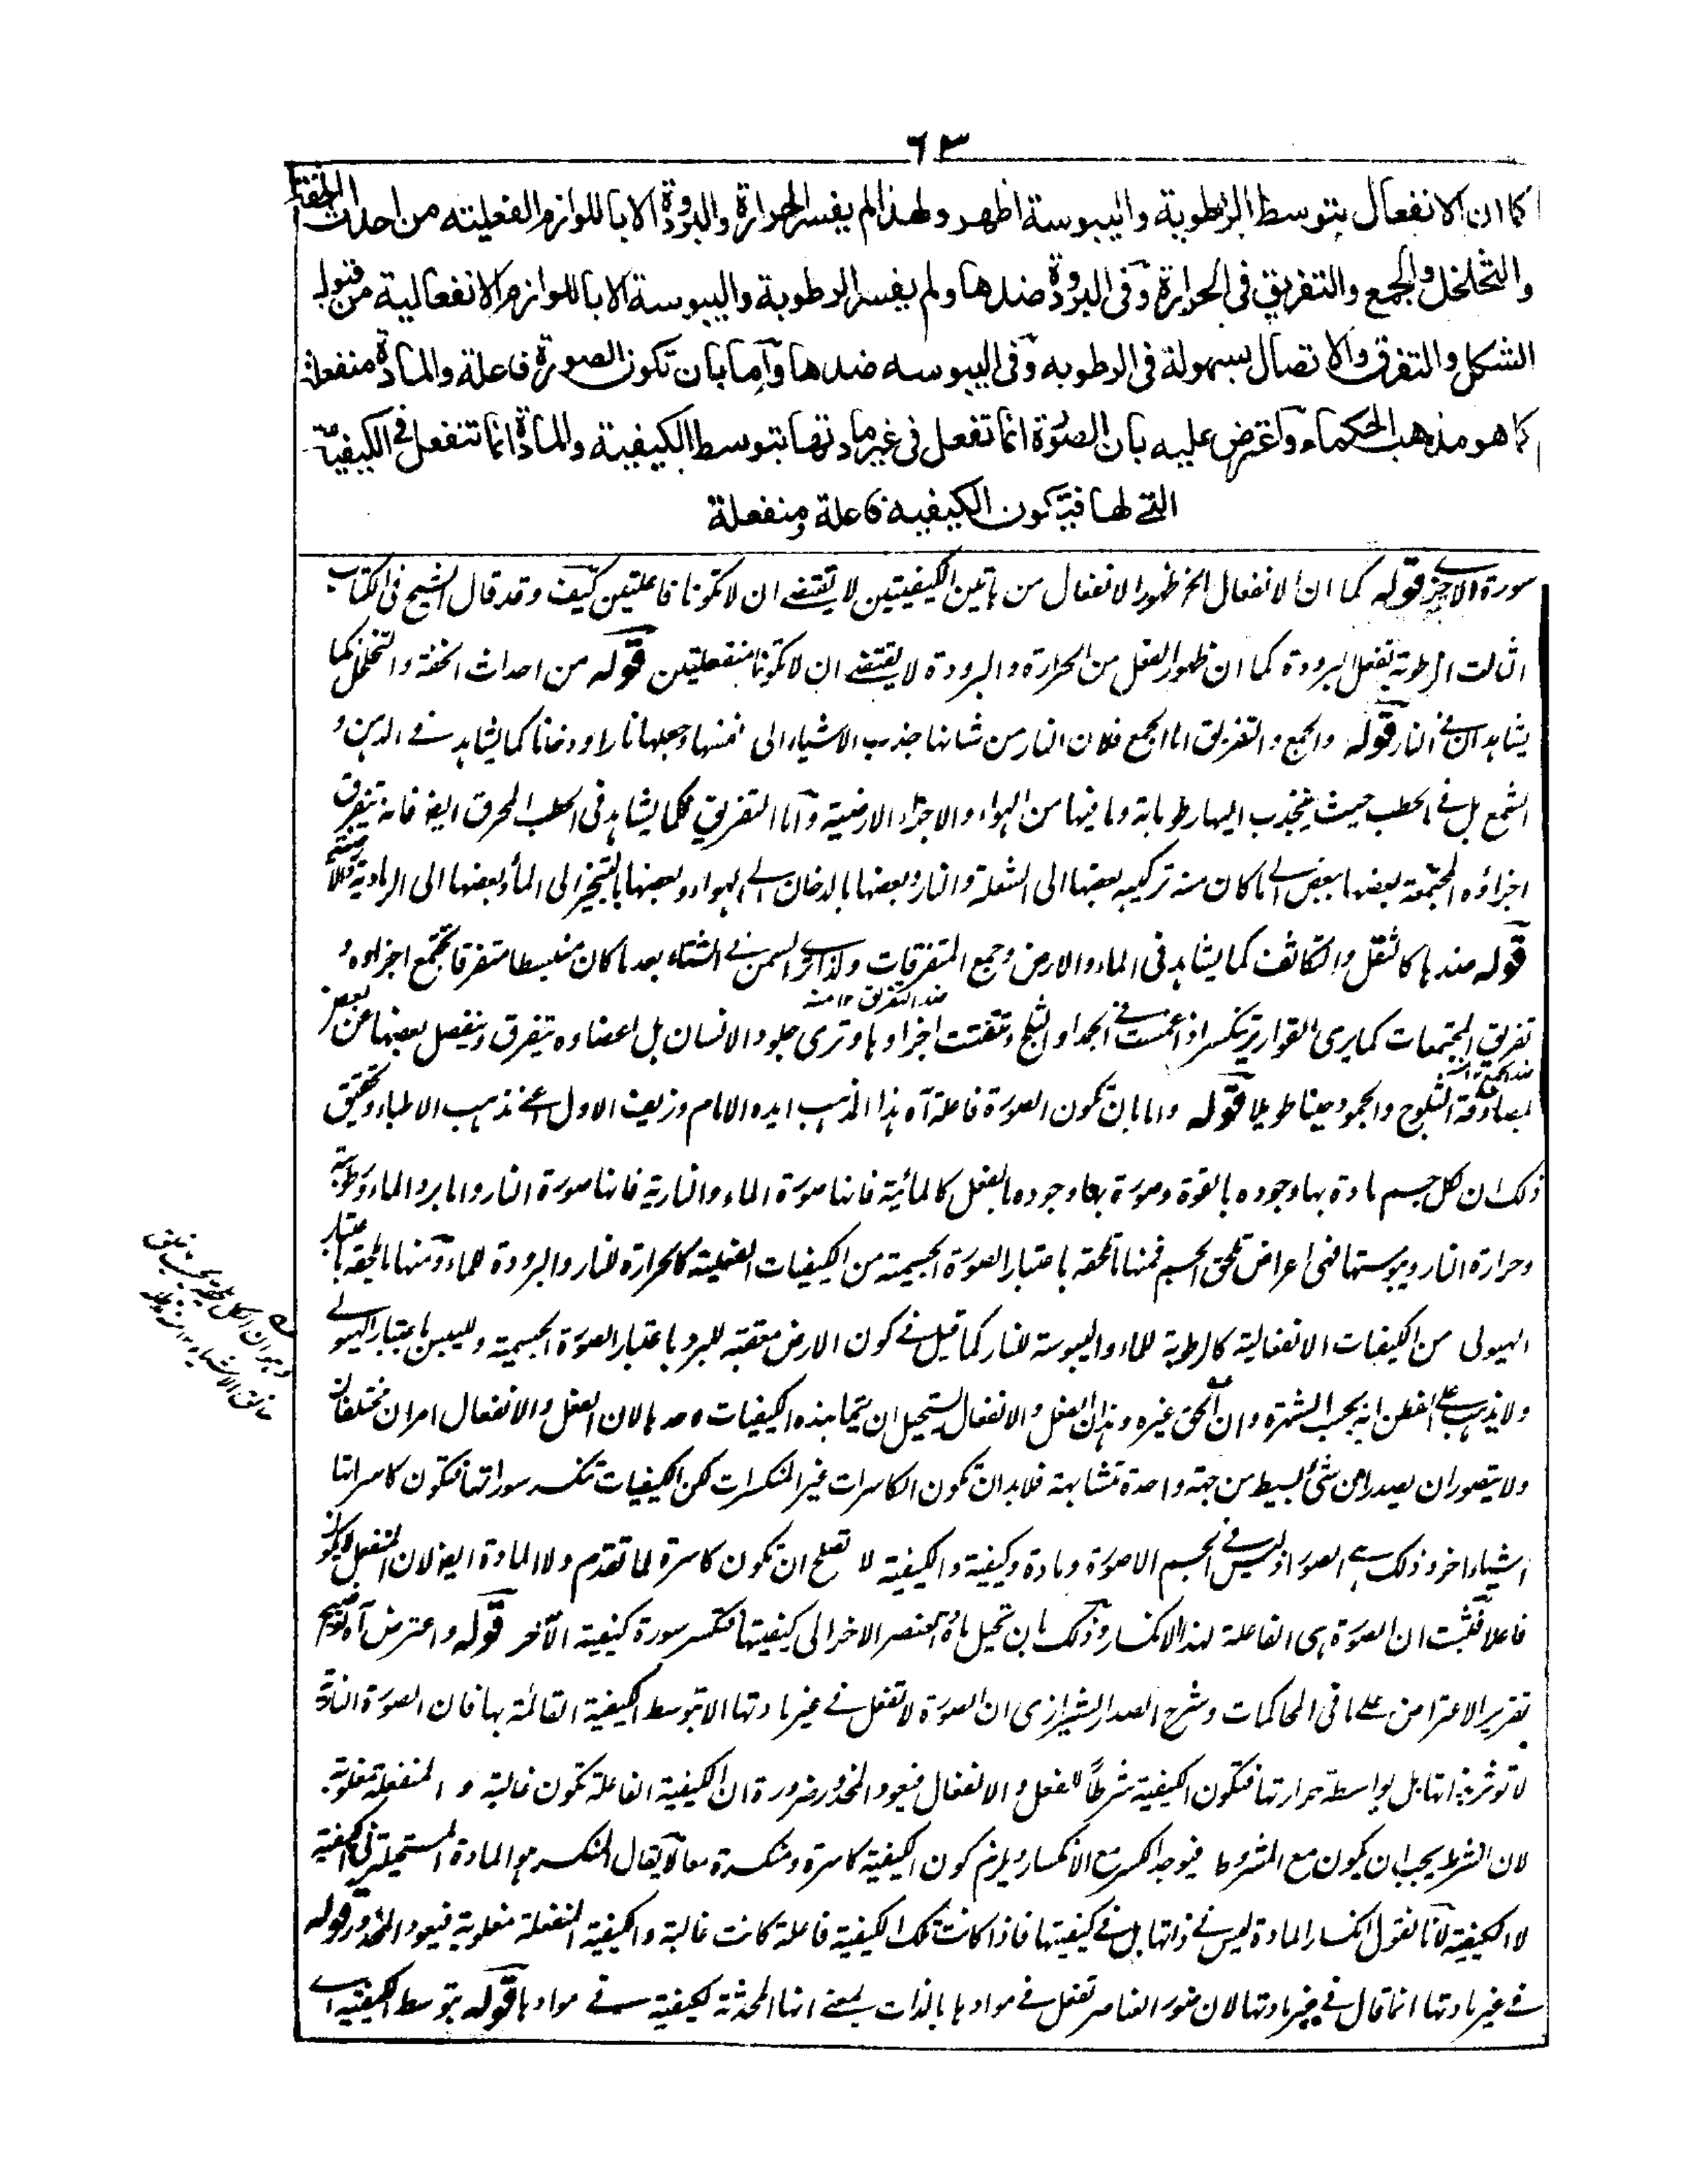 ٦٣
كما ان الانفعال بتوسط الرطوبة واليبوسة اظهر ولهذا لم يفسر الحرارة والبرودة الا باللوازم الفعلية من احداث الخفة
والتخلخل والجمع والتفريق فى الحرارة وفى البرودة ضدها ولم يفسر الرطوبة واليبوسة الا باللوازم الانفعالية من قبول
الشكل والتفرق والاتصال بسهولة فى الرطوبه وفى اليبوسه ضدها واما بان تكون الصورة فاعلة والمادة منفعلة
كما هو مذهب الحكماء واعترض عليه بان الصورة انما تفعل فى غير مادتها بتوسط الكيفية والمادة انما تنفعل فى الكيفية
التى لها فتكون الكيفيه فاعلة ومنفعلة
سورة الاجزاء قوله كما ان الانفعال الخ ظهور الانفعال من هاتين الكيفيتين لا يقتضى ان لا تكونا فاعلتين كيف وقد قال الشيخ فى الكتاب
الثالث الرطوبة تفعل البرودة كما ان ظهور الفعل من الحرارة والبرودة لا يقتضى ان لا تكونا منفعلتين قوله من احداث الخفة والتخلخل كما
يشاهدان فى النار قوله والجمع والتفريق اما الجمع فلان النار من شانها جذب الاشياء الى نفسها وجعلها نارا ودخانا كما يشاهد فى الدهن و
الشمع بل فى الحطب حيث ينجذب اليها رطوباته وما فيها من الهواء والاجزاء الارضية واما التفريق فكما يشاهد فى الحطب المحرق ايضا فانه يتفرق
اجزاؤه المجتمعة بعضها ببعض الى ما كان منه تركيبه بعضها الى الشعلة والنار وبعضها بالدخان الى الهواء وبعضها بالتبخير الى الماء وبعضها الى الرمادية
قوله ضدها كالثقل والتكاثف كما يشاهد فى الماء والارض وجمع المتفرقات ولذا ترى السمن فى الشتاء بعد ما كان منبسطا متفرقا تجتمع اجزاوه و
ضد التفريق ١٢ منه
تفريق المجتمعات كما يرى القوارير تنكسر اذا غمست فى الجمد او الثلج وتتفتت اجزاوها وترى جلود الانسان بل اعضاوه يتفرق وينفصل بعضها عن بعض
بمصادفة الثلوج والجمود حينا طويلا قوله واما بان تكون الصورة فاعلة آه هذا المذهب ايده الامام وزيف الاول اعنى مذهب الاطباء وتحقيق
ذلك ان لكل جسم مادة بها وجوده بالقوة وصورة بها وجوده بالفعل كالمائية فانها صورة الماء والنارية فانها صورة النار واما برد الماء ورطوبته
وحرارة النار ويبوستها فهى اعراض تلحق الجسم فمنها ما تلحقه باعتبار الصورة الجسمية من الكيفيات الفعلية كالحرارة للنار والبرودة للماء ومنها ما تلحقه باعتبار
الهيولى من الكيفيات الانفعالية كالرطوبة للماء واليبوسة للنار كما قيل فى كون الارض مقتضية للبرد باعتبار الصورة الجسمية ولليبس باعتبار الهيولى
ولا يذهب على الفطن انه بحسب الشهرة وان الحق غيره وهذان الفعل والانفعال يستحيل ان يتما بهذه الكيفيات وحدها لان الفعل والانفعال امران مختلفان
ولا يتصور ان يصدرا من شئ بسيط من جهة واحدة متشابهة فلا بد ان تكون الكاسرات غير المنكسرات لكن الكيفيات تنكسر سوراتها فتكون كاسراتها
اشياء اخر وذلك هى الصور اذ ليس فى الجسم الا صورة ومادة وكيفية والكيفية لا تصلح ان تكون كاسرة لما تقدم ولا المادة ايضا لان المنفعل لا يكون
فاعلا فثبت ان الصورة هى الفاعلة لهذا الانكسار وذلك بان تحيل مادة العنصر الاخر الى كيفيتها فتكسر سورة كيفية الآخر قوله واعترض آه توضيح
تقرير الاعتراض على ما فى المحاكمات وشرح الصدر الشيرازى ان الصورة لا تفعل فى غير مادتها الا بتوسط الكيفية القائمة بها فان الصورة النارية
لا توثر بذاتها بل بواسطة حرارتها فتكون الكيفية شرطاً للفعل والانفعال فيعود المحذور ضرورة ان الكيفية الفاعلة تكون غالبة و المنفعلة مغلوبة
لان الشرط يجب ان يكون مع المشروط فيوجد الكسر مع الانكسار ويلزم كون الكيفية كاسرة ومنكسرة معا لا يقال المنكسر هو المادة المستحيلة فى الكيفية
لا الكيفية لانا نقول انكسار المادة ليس فى ذاتها بل فى كيفيتها فاذا كانت تلك الكيفية فاعلة كانت غالبة والكيفية المنفعلة مغلوبة فيعود المحذور قوله
فى غير مادتها انما قال فى غير مادتها لان صور العناصر تفعل فى موادها بالذات بمعنى انها المحدثة لكيفية فى موادها قوله بتوسط الكيفية اى